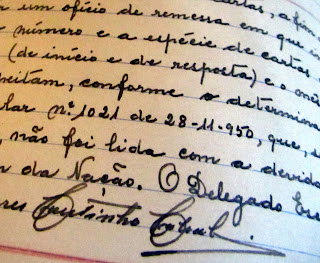 cartas, a fim
um ofício de remessa em que
número e a espécie de cartas
(de início e de resposta) e o
peitam, conforme o determina
lar nº 1021 de 28-11-950, que,
não foi lida com a devida
da Nação. O Delegado
res Coutinho Cabral